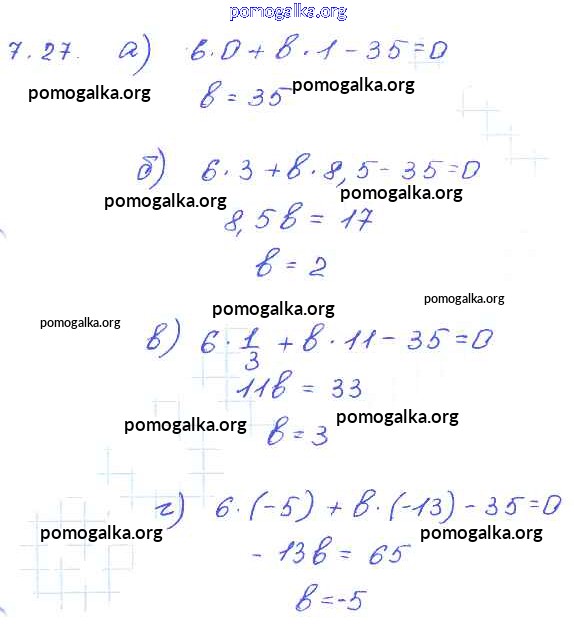 pomogalka.org
7.27. а) 6·0 + в·1 - 35 = 0
pomogalka.org
в = 35
pomogalka.org
б) 6·3 + в·8,5 - 35 = 0
pomogalka.org
pomogalka.org
8,5в = 17
в = 2
pomogalka.org
pomogalka.org
pomogalka.org
в) 6·1/3 + в·11 - 35 = 0
11в = 33
pomogalka.org
pomogalka.org
в = 3
г) 6·(-5) + в·(-13) - 35 = 0
pomogalka.org
pomogalka.org
-13в = 65
в = -5